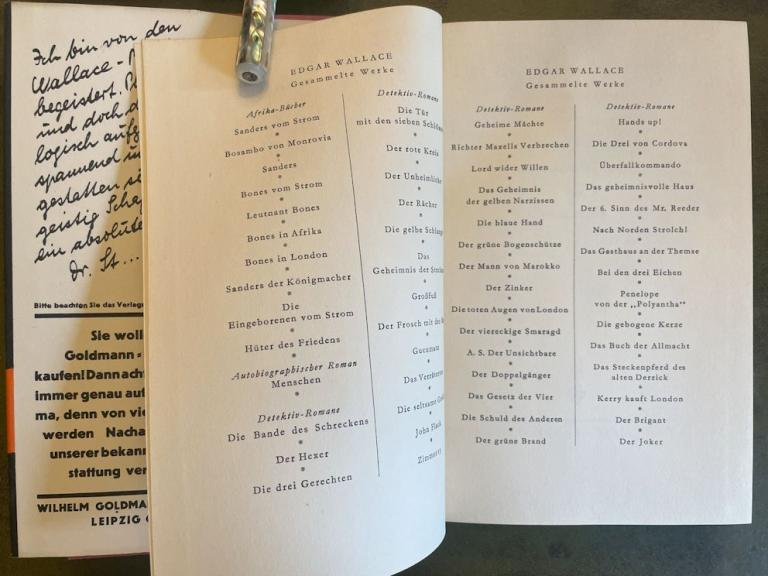 Ich bin von den
Wallace-
begeistert.
und doch d
logisch aufg
spannend u
gestalten si
geistig Scha
ein absolute
Dr. St...
Bitte beachten Sie das Verlags
Sie woll
Goldmann-
kaufen! Dann ach
immer genau auf
ma, denn von vie
werden Nacha
unserer bekan
stattung ver
WILHELM GOLDMA
LEIPZIG
EDGAR WALLACE
Gesammelte Werke
Afrika-Bücher
Sanders vom Strom
Bosambo von Monrovia
Sanders
Bones vom Strom
Leutnant Bones
Bones in Afrika
Bones in London
Sanders der Königmacher
Die
Eingeborenen vom Strom
Hüter des Friedens
Autobiographischer Roman
Menschen
Detektiv-Romane
Die Bande des Schreckens
Der Hexer
Die drei Gerechten
Detektiv-Romane
Die Tür
mit den sieben Schlösse
Der rote Kreis
Der Unheimliche
Der Rächer
Die gelbe Schlange
Das
Geheimnis der
Großfuß
Der Frosch mit der
Gucumatz
Das Verräter
Die seltsame
John Flack
Zimmer 13
EDGAR WALLACE
Gesammelte Werke
Detektiv-Romane
Geheime Mächte
Richter Maxells Verbrechen
Lord wider Willen
Das Geheimnis
der gelben Narzissen
Die blaue Hand
Der grüne Bogenschütze
Der Mann von Marokko
Der Zinker
Die toten Augen von London
Der viereckige Smaragd
A. S. Der Unsichtbare
Der Doppelgänger
Das Gesetz der Vier
Die Schuld des Anderen
Der grüne Brand
Detektiv-Romane
Hands up!
Die Drei von Cordova
Überfallkommando
Das geheimnisvolle Haus
Der 6. Sinn des Mr. Reeder
Nach Norden Strolch!
Das Gasthaus an der Themse
Bei den drei Eichen
Penelope
von der „Polyantha“
Die gebogene Kerze
Das Buch der Allmacht
Das Steckenpferd des
alten Derrick
Kerry kauft London
Der Brigant
Der Joker